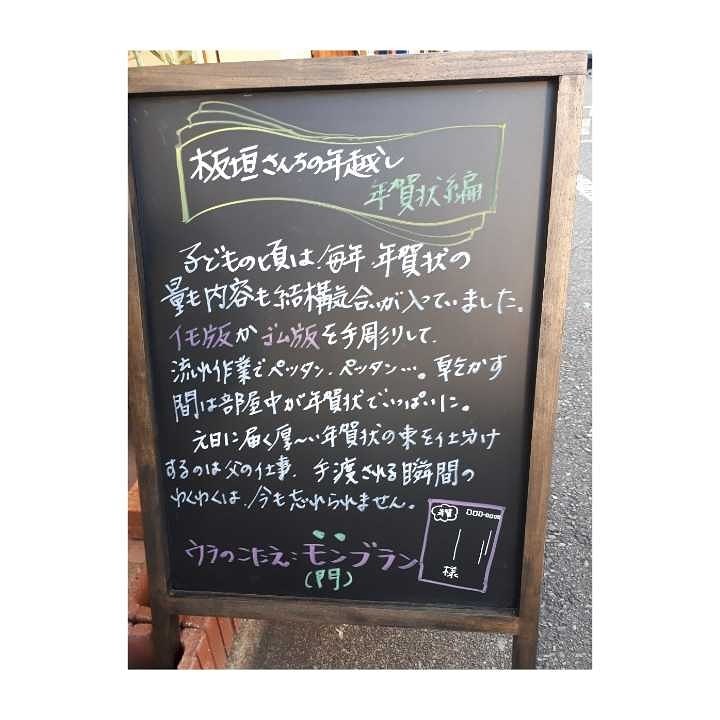 板垣さんちの年越し
年賀状編
子どもの頃は、毎年、年賀状の
量も内容も結構気合いが入っていました。
イモ版かゴム版を手彫りして、
流れ作業でペッタン、ペッタン…。乾かす
間は部屋中が年賀状でいっぱいに。
元日に届く厚〜い年賀状の束を仕分け
するのは父の仕事。手渡される瞬間の
わくわくは、今も忘れられません。
年賀
様
ウラのこたえ:モンブラン
(門)